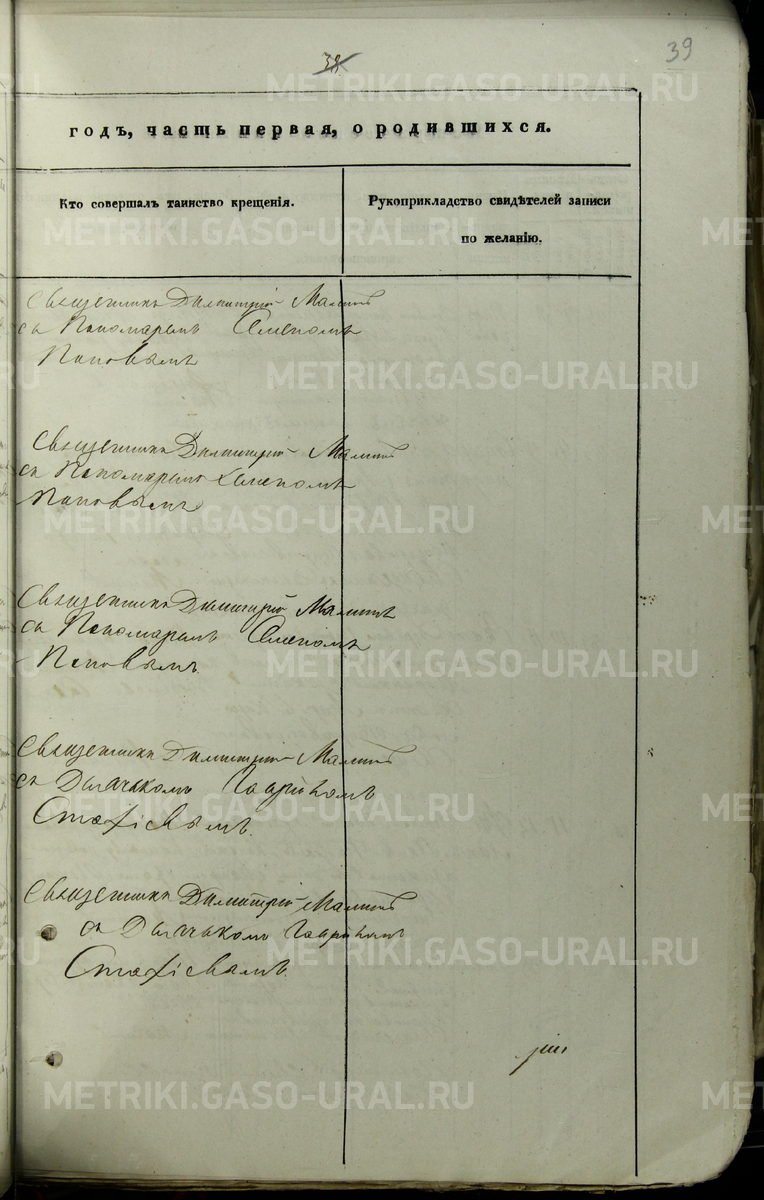 38.
39
годъ, часть первая, о родившихся.
Кто совершалъ таинство крещенія.
Рукоприкладство свидѣтелей записи
по желанію.
Священникъ Димитрій
съ Пономаремъ Семеномъ
Поповымъ
Священникъ Димитрій
съ Пономаремъ Семеномъ
Поповымъ
Священникъ Димитрій
съ Пономаремъ Семеномъ
Поповымъ.
Священникъ Димитрій
съ Дьячкомъ
Стафіевымъ.
Священникъ Димитрій
съ Дьячкомъ
Стафіевымъ.
METRIKI.GASO-URAL.RU